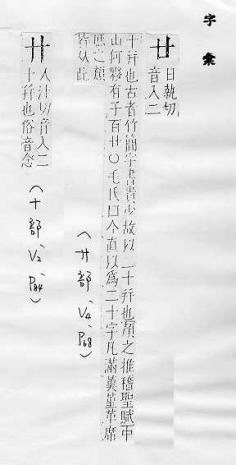 字彙
廿
日執切
音入二
十幷也古者竹簡字書貴少故以二十幷也顏之推稽聖賦中
山何夥有子百廿○毛氏曰今直以為二十字凡滿冀堇革席
庶之類
皆从此
(廿部、V4、P68)
卄
人汁切音入二
十幷也俗音念
(十部、V2、P84)